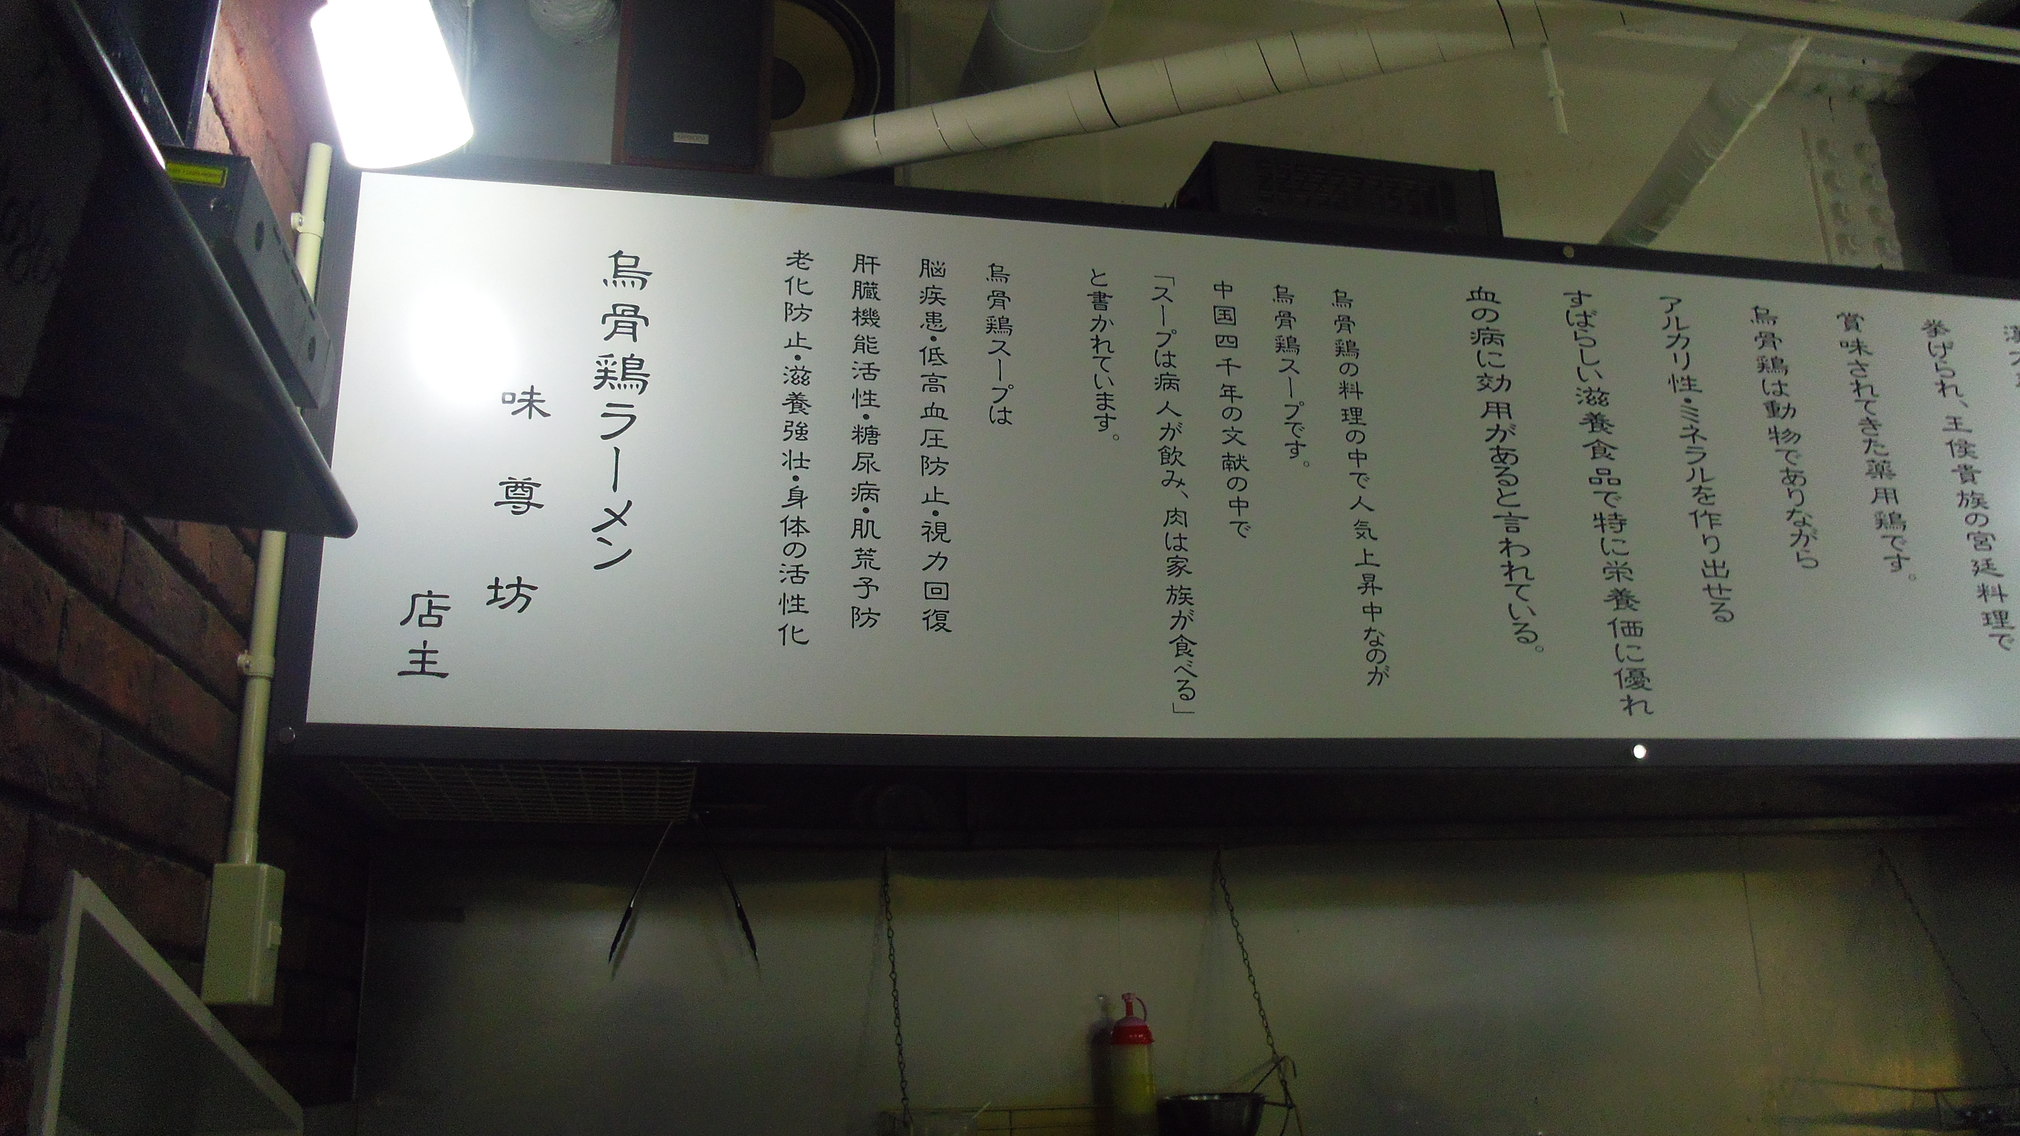 挙げられ、王侯貴族の宮廷料理で
賞味されてきた薬用鶏です。
烏骨鶏は動物でありながら
アルカリ性・ミネラルを作り出せる
すばらしい滋養食品で特に栄養価に優れ
血の病に効用があると言われている。
烏骨鶏の料理の中で人気上昇中なのが
烏骨鶏スープです。
中国四千年の文献の中で
「スープは病人が飲み、肉は家族が食べる」
と書かれています。
烏骨鶏スープは
脳疾患・低高血圧防止・視力回復
肝臓機能活性・糖尿病・肌荒予防
老化防止・滋養強壮・身体の活性化
烏骨鶏ラーメン
味尊坊
店主